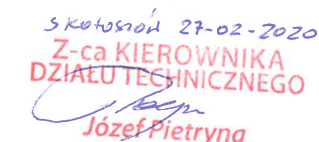 Skołoszów 27-02-2020
Z-ca KIEROWNIKA
DZIAŁU TECHNICZNEGO
Józef Pietryna